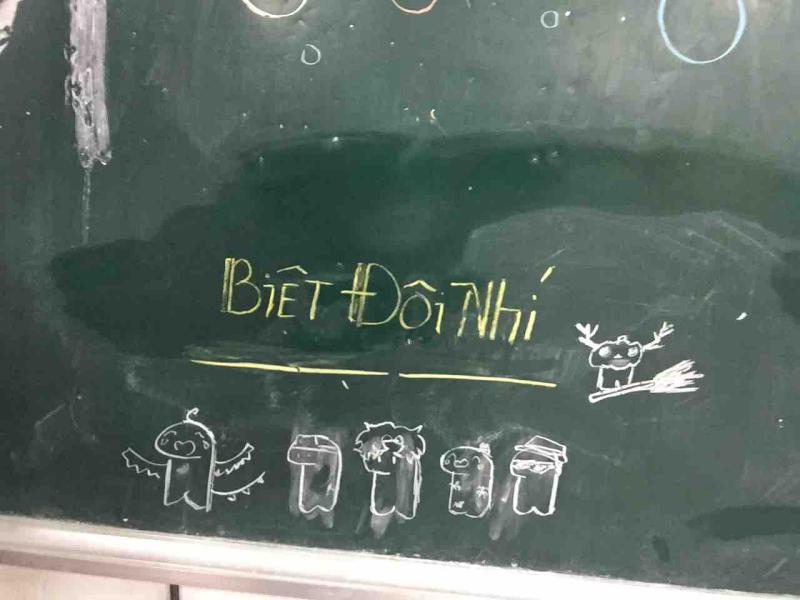 BiÊT ĐÔi Nhí